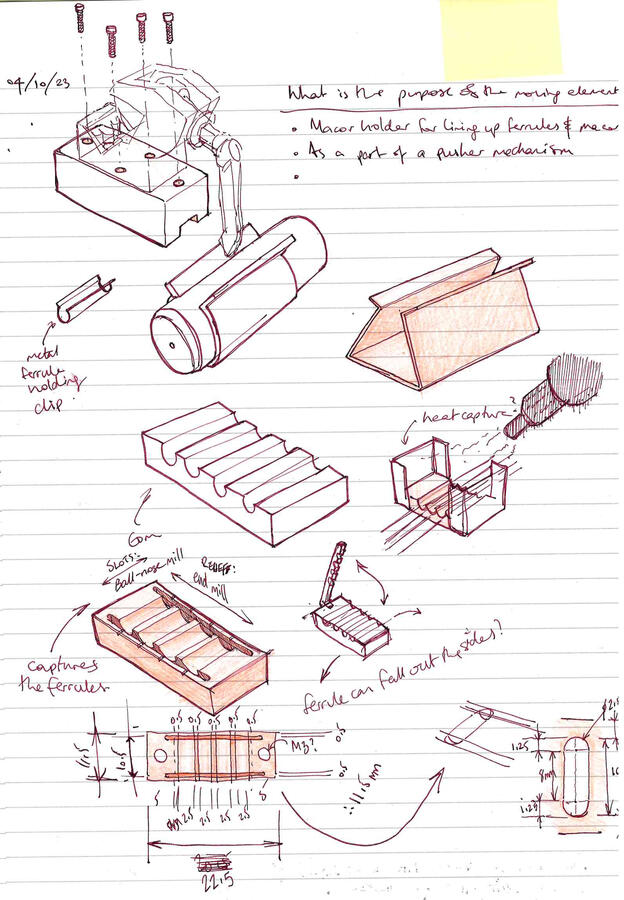 04/10/23
What is the purpose of the moving element
• Macor holder for lining up ferrules & macor
• As a part of a pusher mechanism
•
metal
ferrule
holding
clip.
heat capture?
SLOTS:
Ball-nose mill
RELIEF:
end
mill
captures
the ferrules
ferrule can fall out the sides?
0.5 0.5 0.5 0.5 0.5
M3?
0.5
0.5
11.5
10.5
5
2.5 2.5 2.5
22.5
∴ 11.5mm
1.25
8mm
1.25